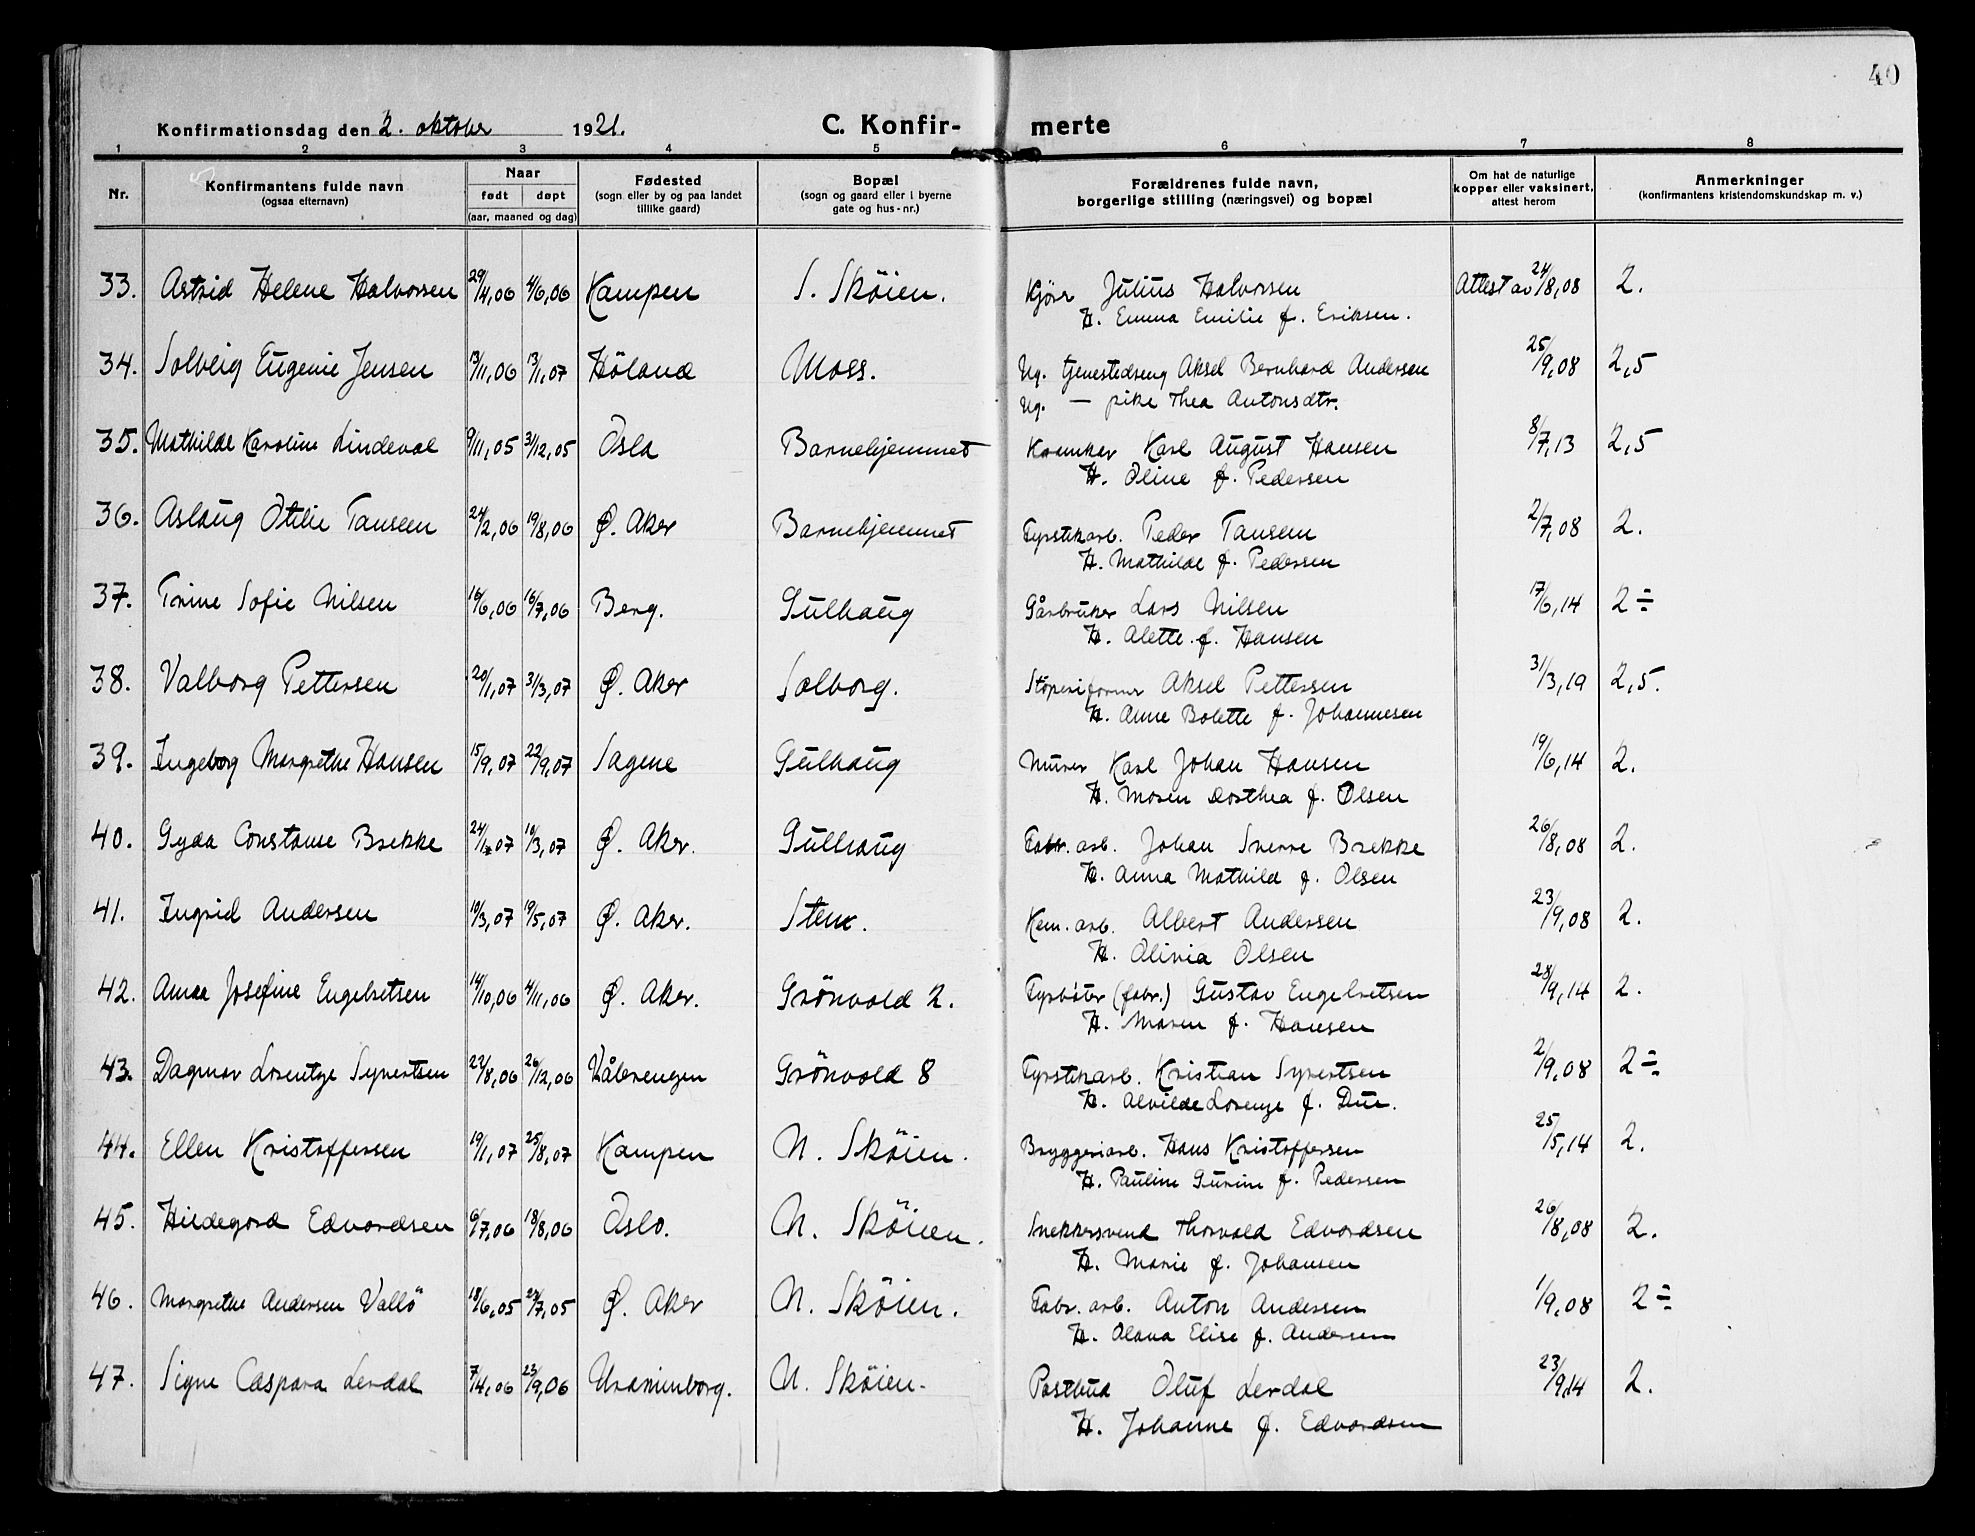 40
Konfirmationsdag den 2. oktober 1921.
C. Konfir- merte
1 2 3 4 5 6 7 8
Nr.
Konfirmantens fulde navn
(ogsaa efternavn)
Naar
født døpt
(aar, maaned og dag)
Fødested
(sogn eller by og paa landet
tillike gaard)
Bopæl
(sogn og gaard eller i byerne
gate og hus-nr.)
Forældrenes fulde navn,
borgerlige stilling (næringsvei) og bopæl
Om hat de naturlige
kopper eller vaksinert,
attest herom
Anmerkninger
(konfirmantens kristendomskundskap m. v.)
33. Astrid Helene Halvorsen 29/4,06 4/6,06 Kampen S. Sköien. Kjörer Julius Halvorsen Attest av 24/8,08 2.
H. Emma Emilie f. Eriksen.
34. Solveig Eugenie Jensen 13/11,06 13/1,07 Höland Moss. Ug. tjenestedreng Aksel Bernhard Andersen 25/9,08 2,5
Ug. — pike Thea Antonsdtr.
35. Mathilde Karoline Lindeval 9/11,05 31/12,05 Oslo Barnehjemmet Karl August Hansen 8/7,13 2,5
H. Oline f. Pedersen
36. Aslaug Otilie Tansem 24/2,06 19/8,06 Ø. Aker Barnehjemmet Fyrstikarb. Peder Tansem 2/7,08 2.
H. Mathilde f. Pedersen
37. Trine Sofie Nilsen 16/6,06 16/7,06 Berg. Gulhaug Gårbruker Lars Nilsen 17/6,14 2 ÷
H. Alette f. Hansen
38. Valborg Pettersen 20/1,07 31/3,07 Ø. Aker Solborg. Støperiformer Aksel Pettersen 31/3,19 2,5.
H. Anne Bolette f. Johannesen
39. Ingeborg Margrethe Hansen 15/9,07 22/9,07 Sagene Gulhaug Murer Karl Johan Hansen 19/6,14 2.
H. Maren Dorthea f. Olsen
40. Gyda Constanse Brekke 24/1,07 10/3,07 Ø. Aker. Gulhaug Fabr. arb. Johan Sverre Brekke 26/8,08 2.
H. Anna Mathild f. Olsen
41. Ingrid Andersen 10/3,07 19/5,07 Ø. Aker. Sten. Kem. arb. Albert Andersen 23/9,08 2.
H. Olivia Olsen
42. Anna Josefine Engebretsen 14/10,06 4/11,06 Ø. Aker. Grönvold 2. Fyrböter (fabr.) Gustav Engebretsen 28/9,14 2.
H. Maren f. Hansen
43. Dagmar Lorentze Syvertsen 22/8,06 26/12,06 Vålerengen Grönvold 8 Fyrstikarb. Kristian Syvertsen 2/9,08 2 ÷
H. Alvilde Lorenze f. Due.
44. Ellen Kristoffersen 19/1,07 25/8,07 Kampen N. Sköien. Bryggeriarb. Hans Kristoffersen 25/5,14 2.
H. Pauline Gurine f. Pedersen
45. Hildegard Edvardsen 6/7,06 18/8,06 Oslo. N. Sköien. Snekkersvend Thorvald Edvardsen 26/8,08 2.
H. Marie f. Johansen
46. Margrethe Andersen Vallö 18/6,05 22/7,05 Ø. Aker N. Sköien. Fabr. arb. Anton Andersen 1/9,08 2 ÷
H. Olava Elise f. Andersen
47. Signe Caspara Lerdal 7/4,06 23/9,06 Uranienborg. N. Sköien. Postbud Oluf Lerdal 23/9,14 2.
H. Johanne f. Edvardsen